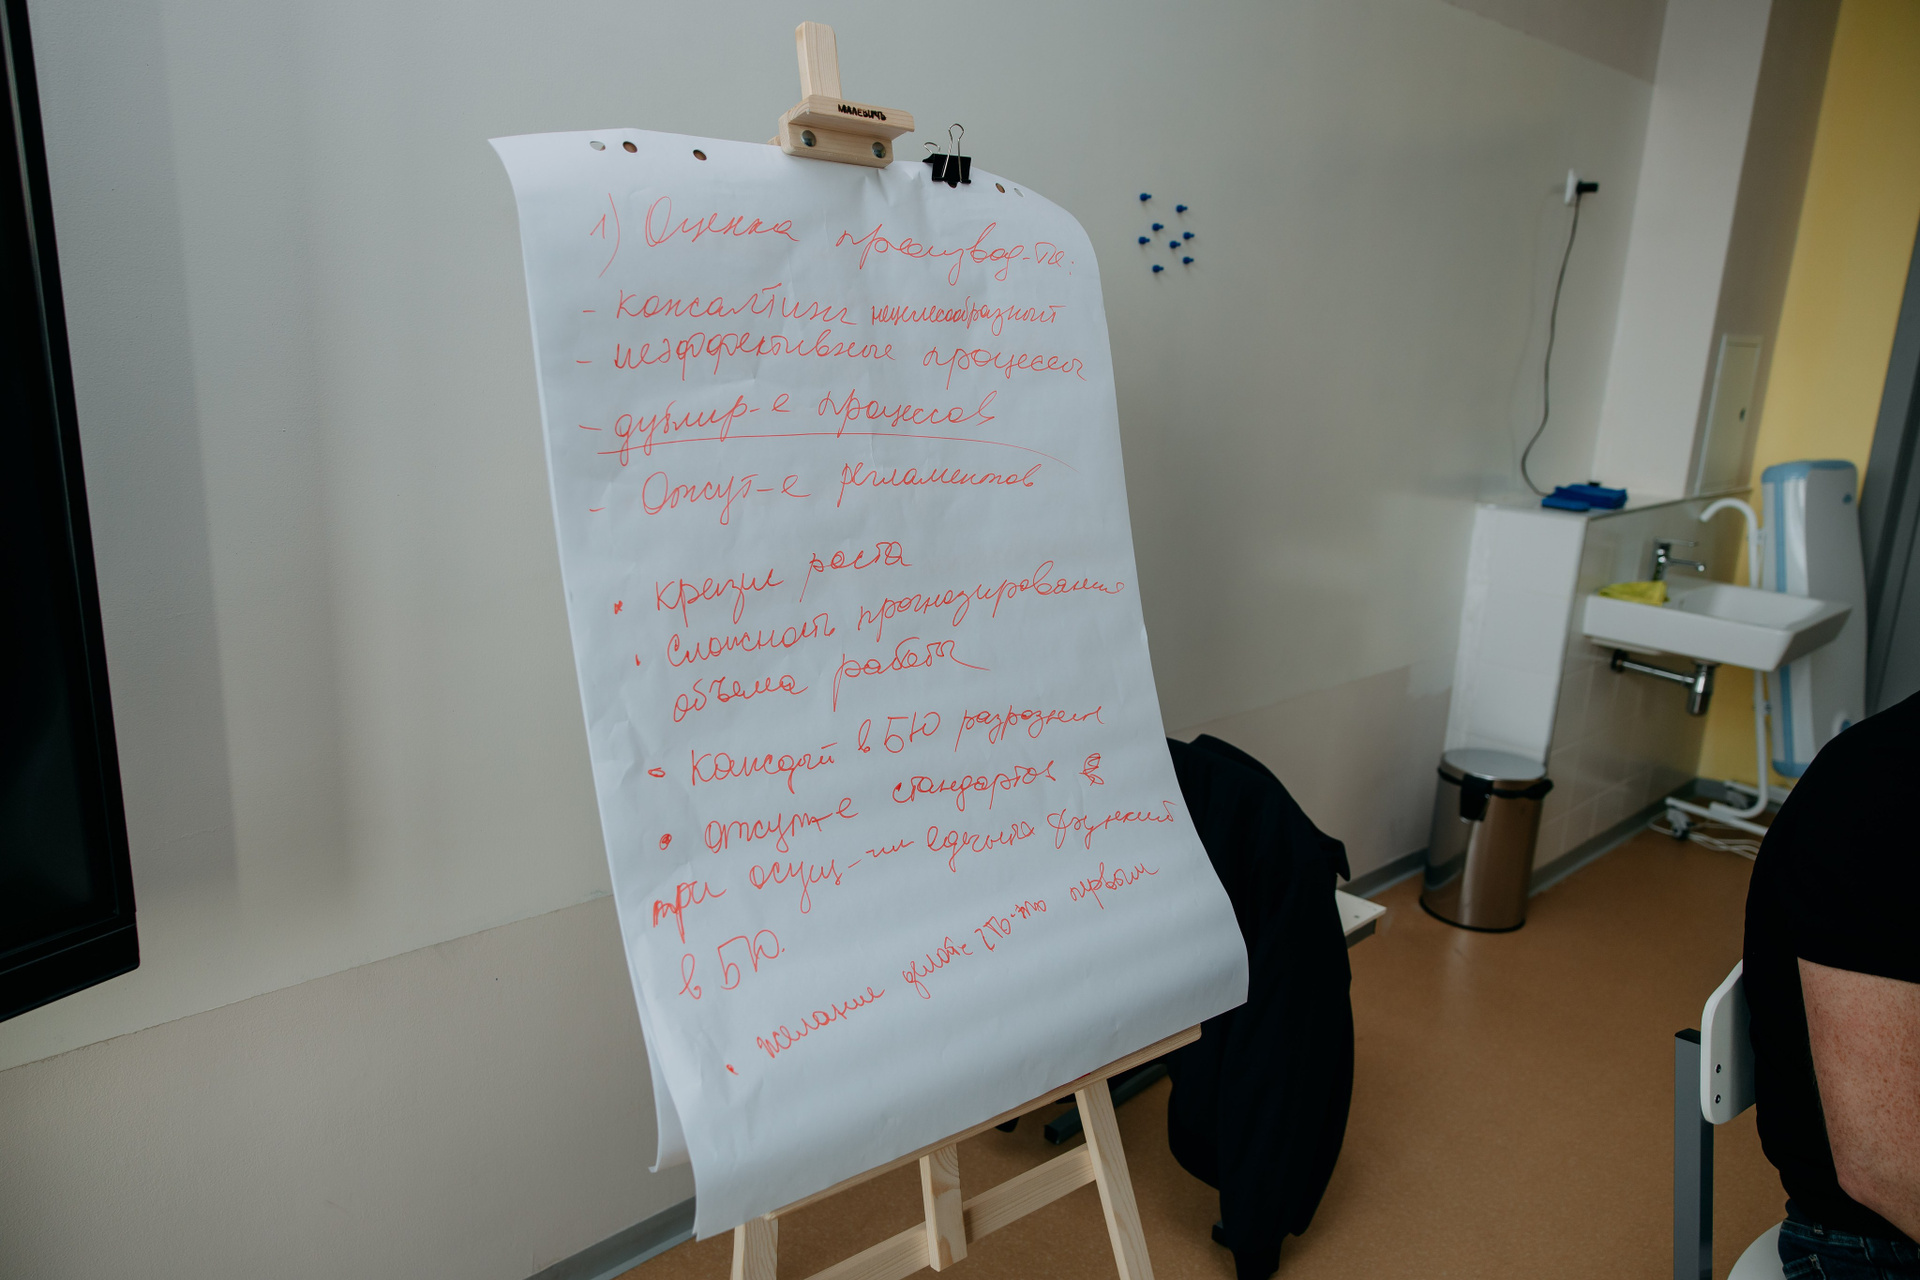 МАЛЕВИЧЪ
1) Оценка производ-ти:
- консалтинг нецелесообразный
- неэффективные процессы
- дублир-е процессов
- Отсут-е регламентов
• кризис роста
• Сложность прогнозирования
объёма работы
• Каждый в БЮ разрознен
• отсут-е стандартов
при осущ-ии единых функций
в БЮ.
• желание делать что-то первым